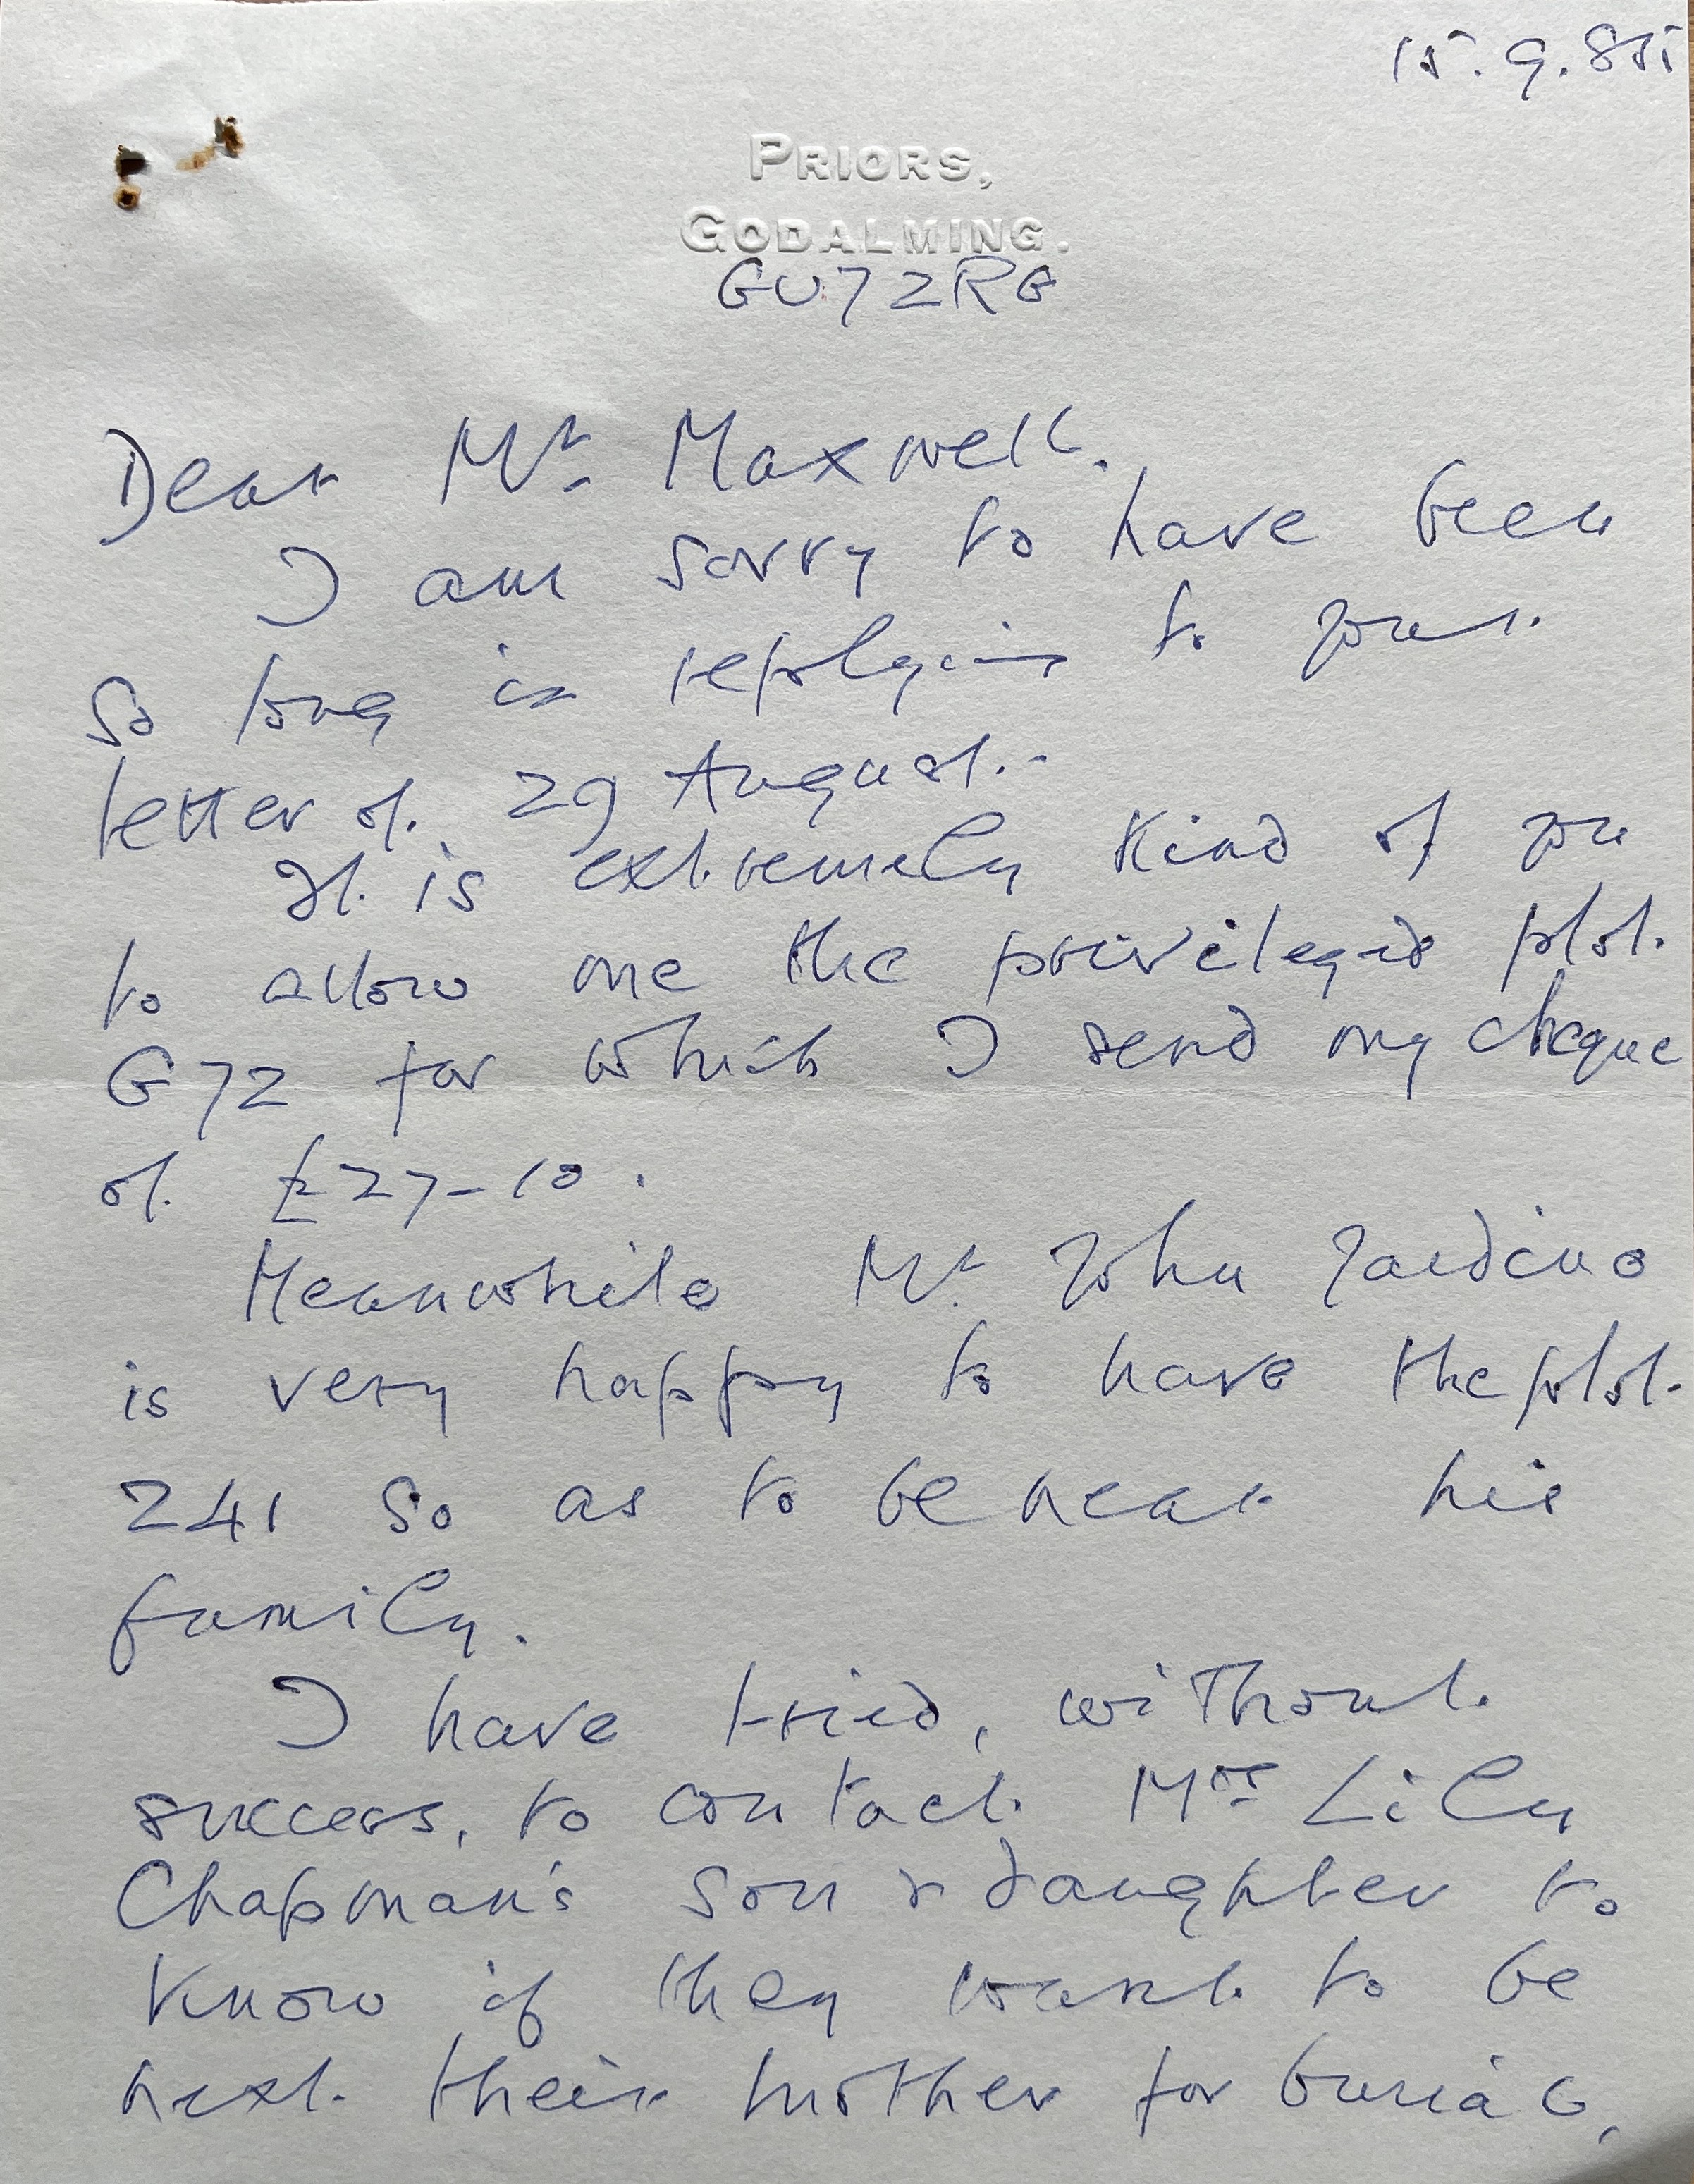 15.9.85
PRIORS,
GODALMING.
GU7 2RG
Dear Mr. Maxwell.
I am sorry to have been
so long in replying to your
letter of 29 August.
It is extremely kind of you
to allow me the privileged plot
G72 for which I send my cheque
of £27-10.
Meanwhile Mr. John Jardine
is very happy to have the plot
241 so as to be near his
family.
I have tried, without
success, to contact Mrs Lily
Chapman's son & daughter to
know if they want to be
next their mother for burial,